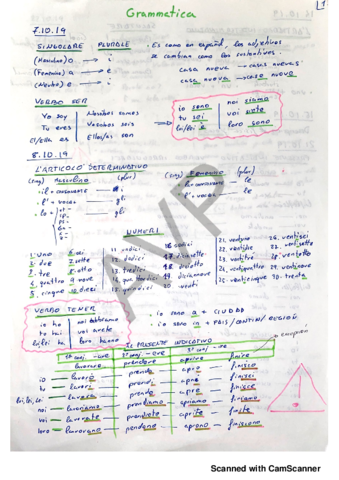 Grammatica
1
7.10.19
SINGOLARE PLURALE
· Es como en español, los adjetivos
se cambian como los sustantivos.
(Masculino) o → i
(Femenino) a → e
(Neutro) e → i
casa nueva → casas nuevas
casa nuova → case nuove
VERBO SER
Yo soy Nosotros somos
Tu eres Vosotros sois
El/ella es Ellos/as son
io sono noi siamo
tu sei voi siete
lui/lei è loro sono
8.10.19
L'ARTICOLO DETERMINATIVO
(sing) Masculino (plur)
(sing) Femenino (plur)
· il = consonante i
· l' = vocal gli
· lo = gli
la = consonante le
l' = vocal le
NUMERI
1. uno 6. sei 11. undici 16. sedici 21. ventuno 26. ventisei
2. due 7. sette 12. dodici 17. diciassette 22. ventidue 27. ventisette
3. tre 8. otto 13. tredici 18. diciotto 23. ventitré 28. ventotto
4. quattro 9. nove 14. quattordici 19. diciannove 24. ventiquattro 29. ventinove
5. cinque 10. dieci 15. quindici 20. venti 25. venticinque 30. trenta
VERBO TENER
io ho noi abbiamo
tu hai voi avete
lui/lei ha loro hanno
· io sono a = CIUDAD
· io sono in = PAIS/CONTIN/REGIÓN
IL PRESENTE INDICATIVO
1ª conj. -are 2ª conj. -ere 3ª conj. -ire
lavorare prendere aprire finire
io lavoro prendo apro finisco
tu lavori prendi apri finisci
lui, lei, Lei lavora prende apre finisce
noi lavoriamo prendiamo apriamo finiamo
voi lavorate prendete aprite finite
loro lavorano prendono aprono finiscono
AVP
Scanned with CamScanner